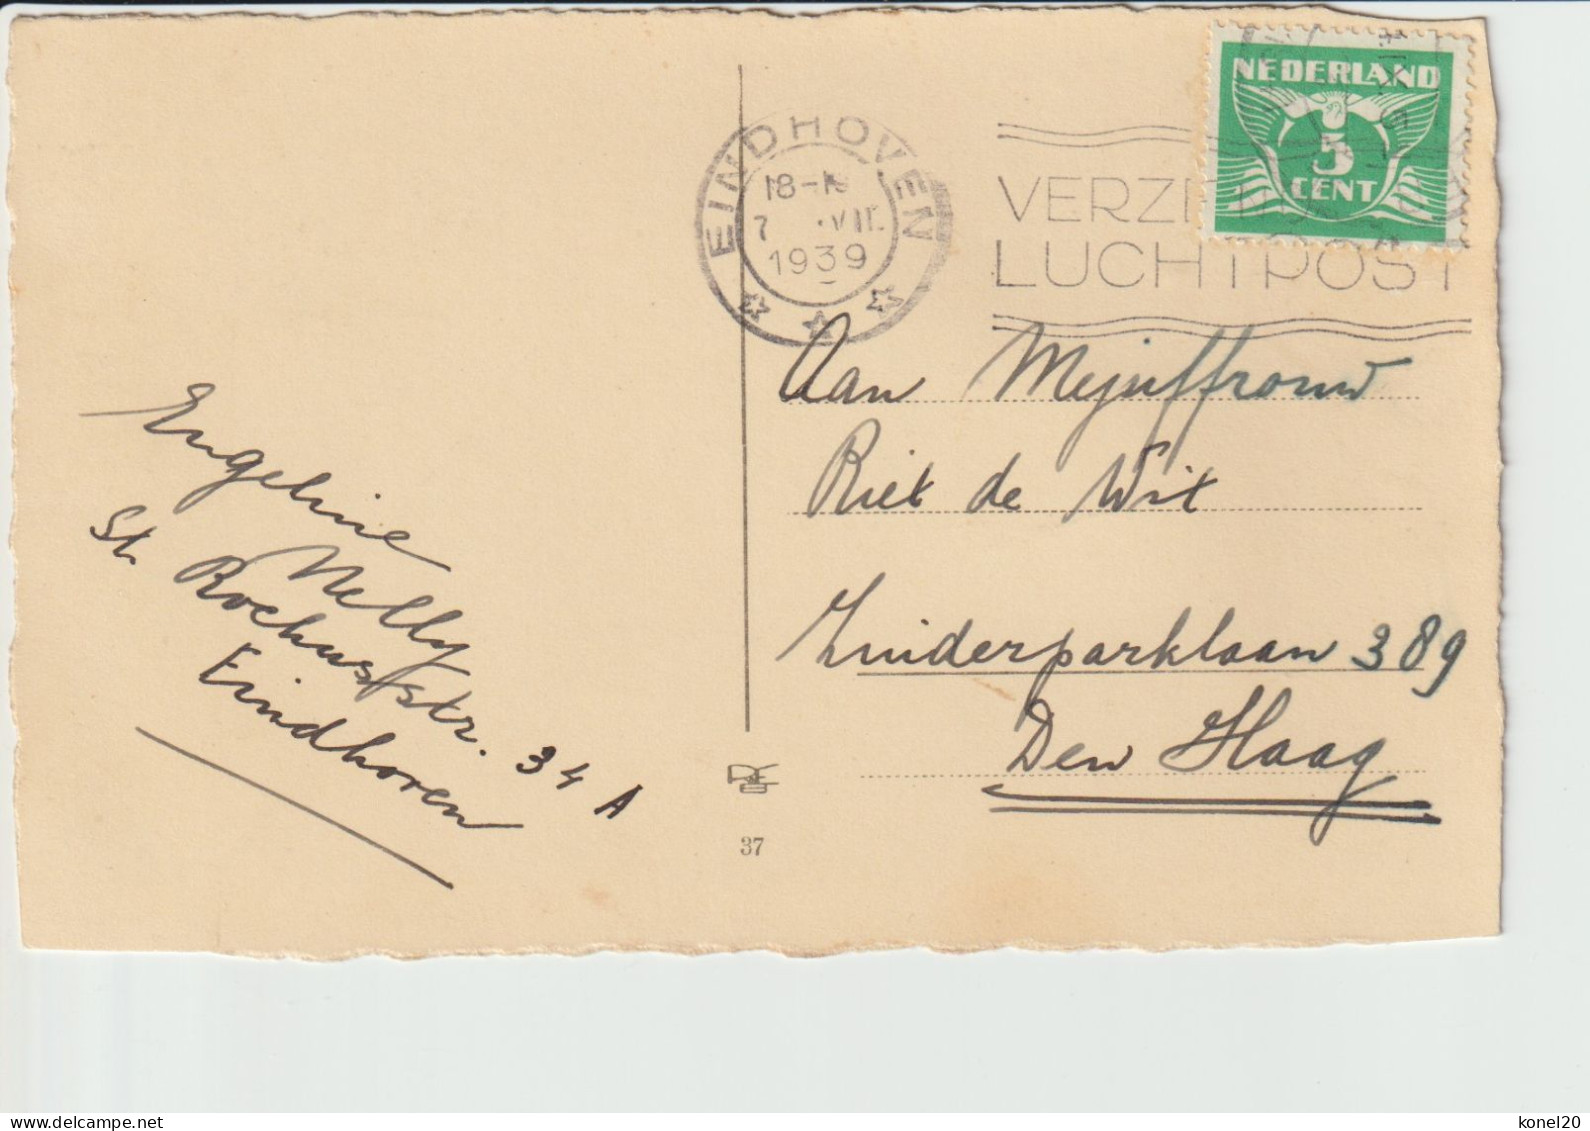 NEDERLAND
3
CENT
EINDHOVEN
18-19
7 .VII.
1939
VERZ
LUCHTPOST
Aan Mejuffrouw
Riet de Wit
Zuiderparklaan 389
Den Haag
Engeline
Nelly
St. Rochusstr. 34 A
Eindhoven
37
konel20